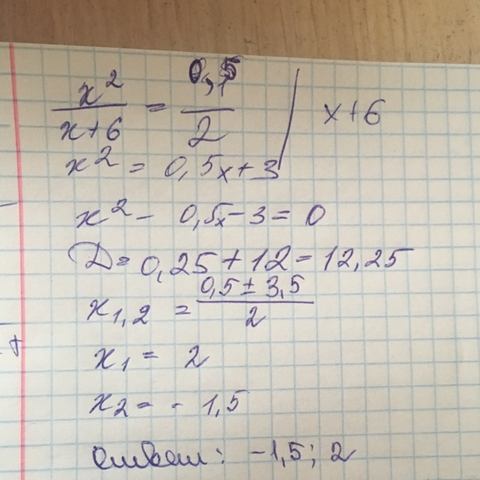 x² / (x+6) = 0,5 / 2 | x+6
x² = 0,5x+3
x² - 0,5x - 3 = 0
D = 0,25 + 12 = 12,25
x₁,₂ = (0,5 ± 3,5) / 2
x₁ = 2
x₂ = - 1,5
Ответ: -1,5; 2